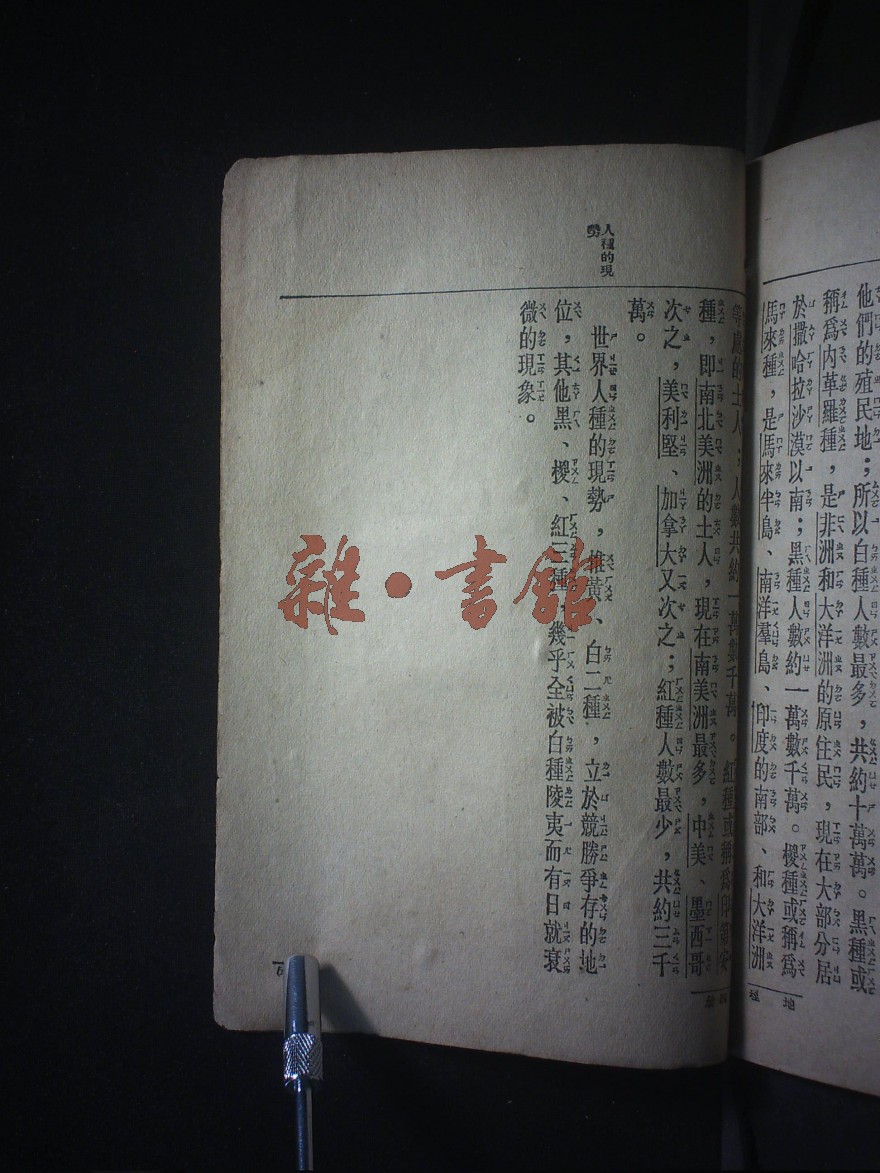 他們的殖民地；所以白種人數最多，共約十萬萬。黑種或
稱爲內革羅種，是非洲和大洋洲的原住民，現在大部分居
於撒哈拉沙漠以南；黑種人數約一萬數千萬。椶種或稱爲
馬來種，是馬來半島、南洋羣島、印度的南部、和大洋洲
等處的土人；人數共約一萬數千萬。紅種或稱爲印第安
種，即南北美洲的土人，現在南美洲最多，中美、墨西哥
次之，美利堅、加拿大又次之；紅種人數最少，共約三千
萬。
人種的現
勢
世界人種的現勢，推黃、白二種，立於競勝爭存的地
位，其他黑、椶、紅三種，幾乎全被白種陵夷而有日就衰
微的現象。
雜·書館